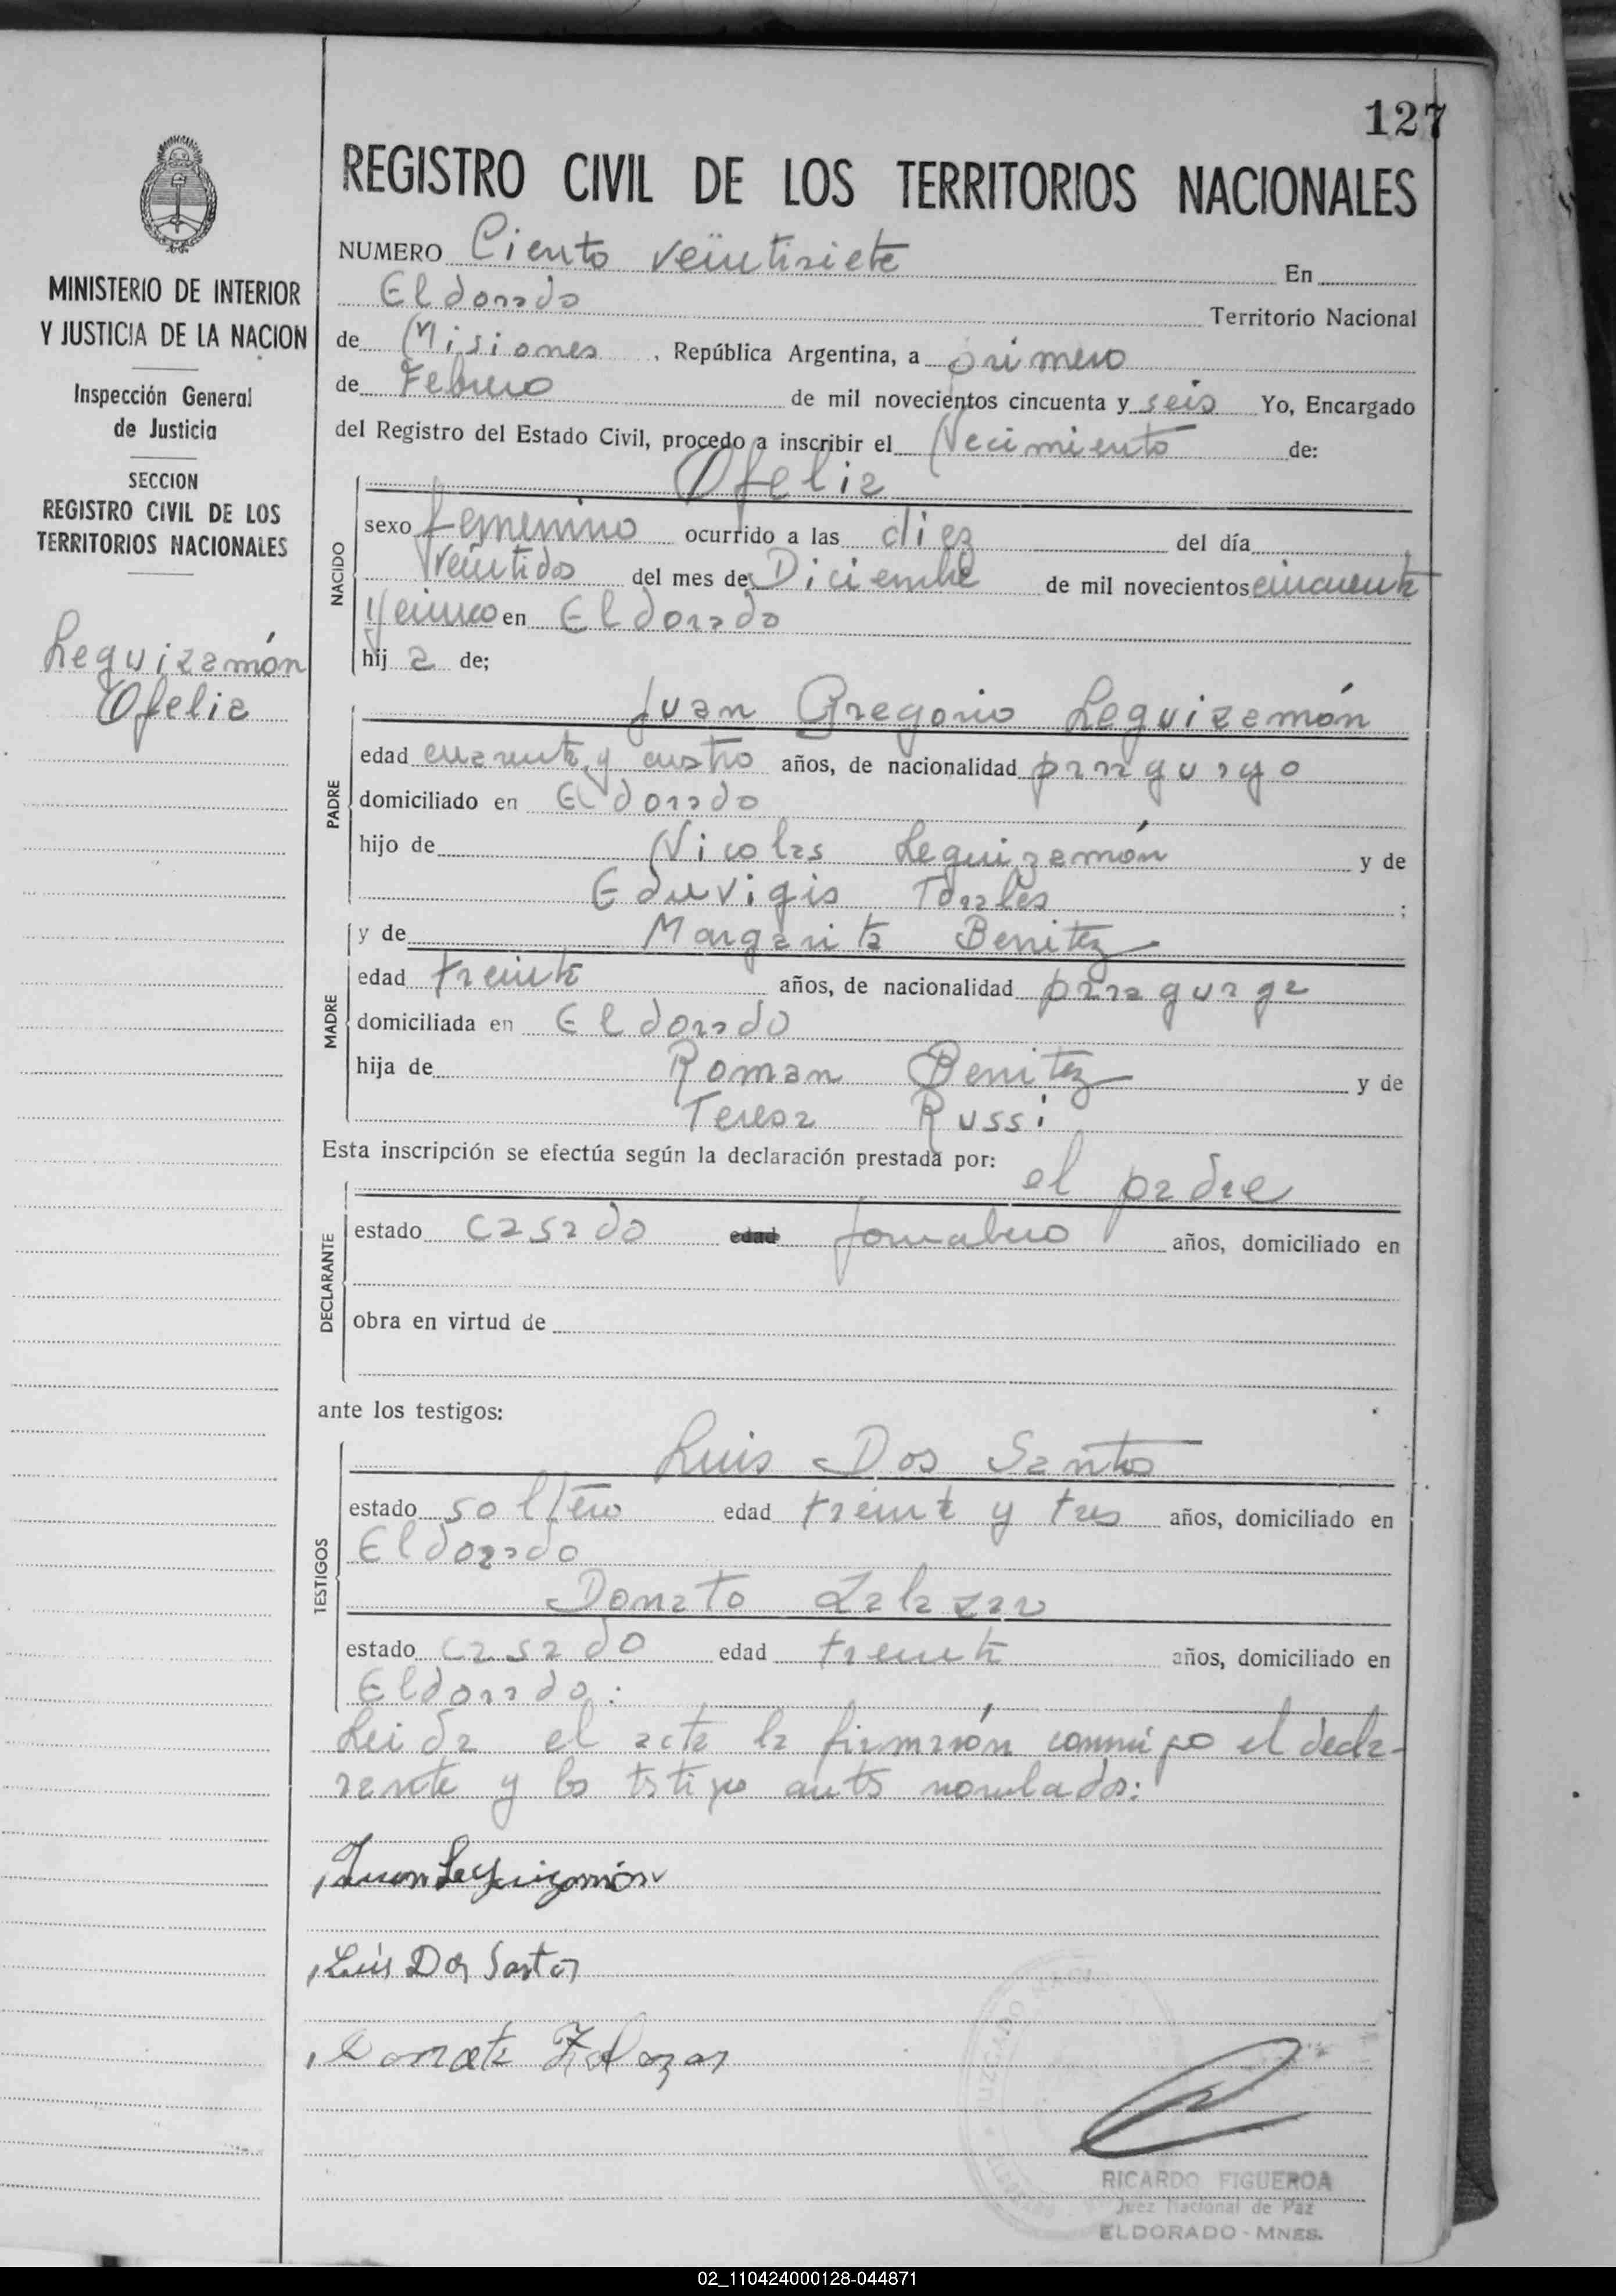 127
REGISTRO CIVIL DE LOS TERRITORIOS NACIONALES
MINISTERIO DE INTERIOR
Y JUSTICIA DE LA NACION
Inspección General
de Justicia
SECCION
REGISTRO CIVIL DE LOS
TERRITORIOS NACIONALES
Leguizamón
Ofelia
NUMERO Ciento veintisiete En
Eldorado Territorio Nacional
de Misiones, República Argentina, a primero
de Febrero de mil novecientos cincuenta y seis Yo, Encargado
del Registro del Estado Civil, procedo a inscribir el Nacimiento de:
NACIDO
Ofelia
sexo femenino ocurrido a las diez del día
veintidos del mes de Diciembre de mil novecientos cincuenta
y cinco en Eldorado
hij a de;
PADRE
Juan Gregorio Leguizamón
edad cuarenta y cuatro años, de nacionalidad paraguayo
domiciliado en Eldorado
hijo de Nicolas Leguizamón y de
Eduvigis Torales ;
MADRE
y de Margarita Benitez
edad treinta años, de nacionalidad paraguaya
domiciliada en Eldorado
hija de Roman Benitez y de
Teresa Russi
Esta inscripción se efectúa según la declaración prestada por:
DECLARANTE
el padre
estado casado edad jornalero años, domiciliado en
obra en virtud de
ante los testigos:
TESTIGOS
Luis Dos Santos
estado soltero edad treinta y tres años, domiciliado en
Eldorado
Donato Zalazar
estado casado edad treinta años, domiciliado en
Eldorado:
Leida el acta la firmarón conmigo el decla-
rante y los testigos antes nombrados:
Juan Leguizamón
Luis Dos Santos
Donato Zalazar
RICARDO FIGUEROA
Juez Nacional de Paz
ELDORADO - MNES.
02_110424000128-044871